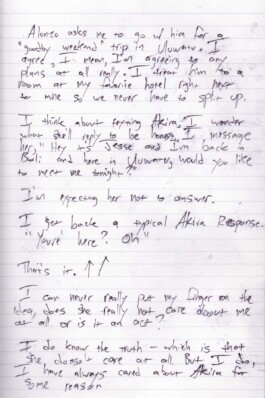 Alonzo asks me to go w/ him for a
"goodby weekend" trip in Uluwatu. I
agree, I mean, I'm agreeing to any
plans at all really. I treat him to a
room at my favorite hotel right next
to mine so we never have to split up.
I think about texting Akira, I wonder
what she'll reply to be honest, I message
her, "Hey it's Jesse and I'm back in
Bali and here in Uluwatu, would you like
to meet me tonight?"
I'm expecting her not to answer.
I get back a typical Akira Response.
"You're here? Oh"
That's it.
I can never really put my finger on the
idea, does she really not care about me
at all or is it an act?
I do know the truth - which is that
she doesn't care at all. But I do,
I have always cared about Akira for
some reason